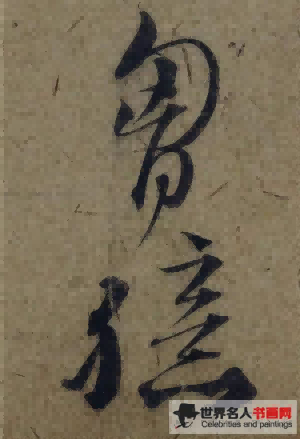 胷
臆
世界名人书画网
Celebrities and paintings